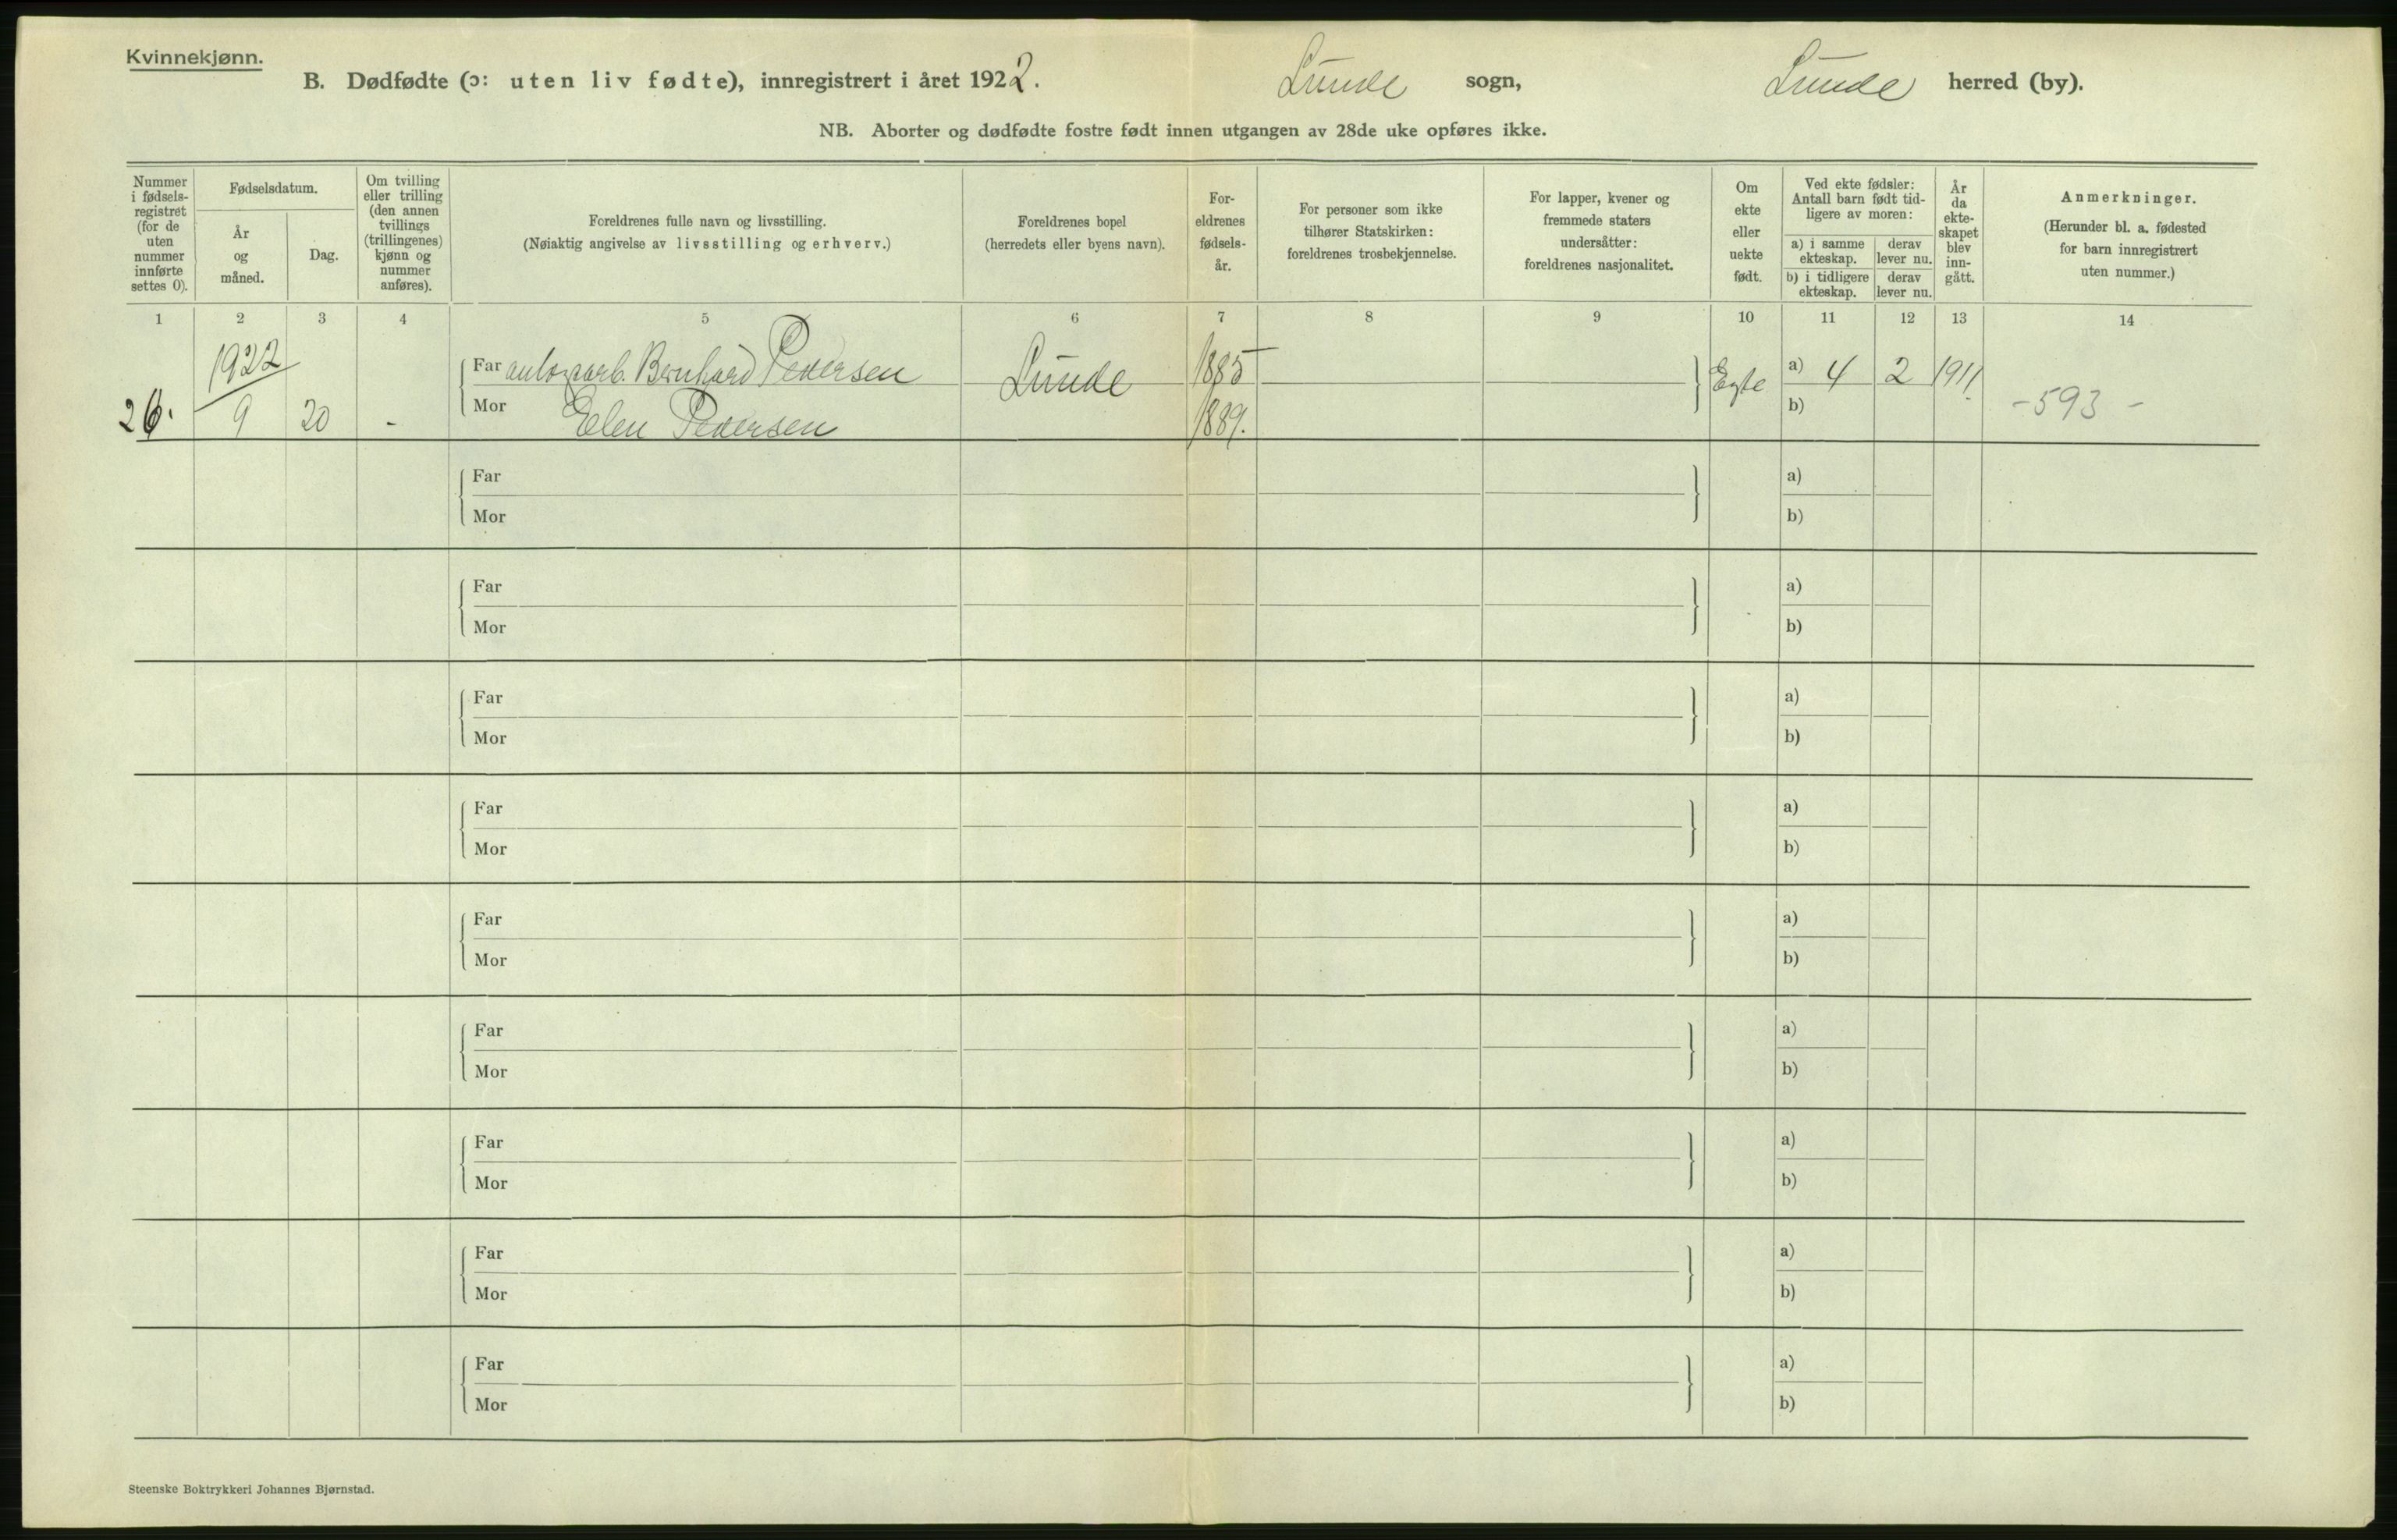 Kvinnekjønn.
B. Dødfødte (ɔ: uten liv fødte), innregistrert i året 1922. Lunde sogn, Lunde herred (by).
NB. Aborter og dødfødte fostre født innen utgangen av 28de uke opføres ikke.
Nummer
i fødsels-
registret
(for de
uten
nummer
innførte
settes 0).
Fødselsdatum.
År
og
måned.
Dag.
Om tvilling
eller trilling
(den annen
tvillings
(trillingenes)
kjønn og
nummer
anføres).
Foreldrenes fulle navn og livsstilling.
(Nøiaktig angivelse av livsstilling og erhverv.)
Foreldrenes bopel
(herredets eller byens navn).
For-
eldrenes
fødsels-
år.
For personer som ikke
tilhører Statskirken:
foreldrenes trosbekjennelse.
For lapper, kvener og
fremmede staters
undersåtter:
foreldrenes nasjonalitet.
Om
ekte
eller
uekte
født.
Ved ekte fødsler:
Antall barn født tid-
ligere av moren:
a) i samme
ekteskap.
derav
lever nu.
b) i tidligere
ekteskap.
derav
lever nu.
År
da
ekte-
skapet
blev
inn-
gått.
Anmerkninger.
(Herunder bl. a. fødested
for barn innregistrert
uten nummer.)
1 2 3 4 5 6 7 8 9 10 11 12 13 14
1922
Far Bernhard Pedersen Lunde 1885 Egte a) 4 2 1911.
26. 9 20 - Mor Elen Pedersen 1889. b) -593-
Far a)
Mor b)
Far a)
Mor b)
Far a)
Mor b)
Far a)
Mor b)
Far a)
Mor b)
Far a)
Mor b)
Far a)
Mor b)
Far a)
Mor b)
Far a)
Mor b)
Steenske Boktrykkeri Johannes Bjørnstad.